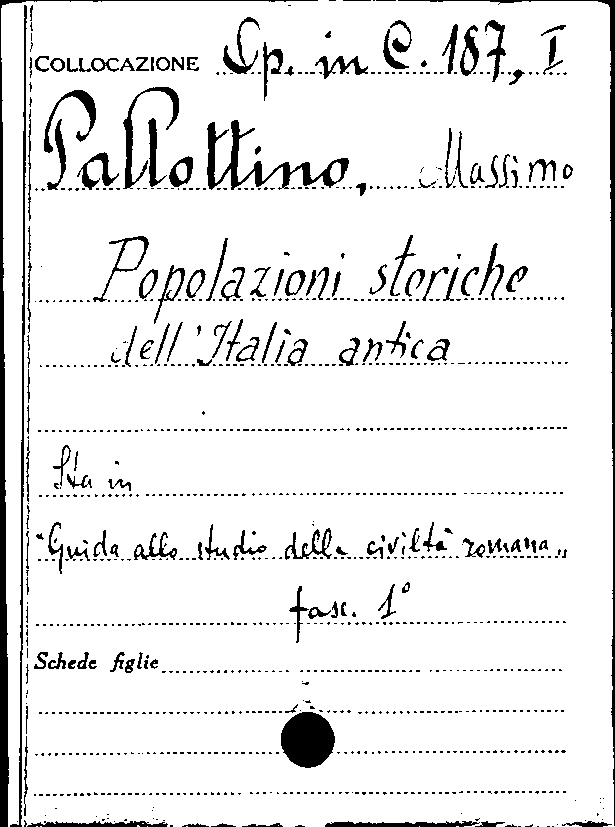 COLLOCAZIONE Op. in C. 187, I
Pallottino, Massimo
Popolazioni storiche
dell'Italia antica
Sta in
"Guida allo studio della civiltà romana„
fasc. 1°
Schede figlie